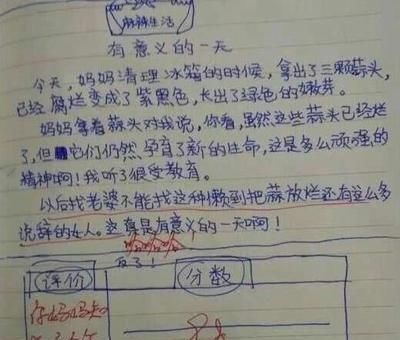 麻辣生活
有意义的一天
今天,妈妈清理冰箱的时候,拿出了三颗蒜头,
已经腐烂变成了紫黑色,长出了绿色的嫩芽。
妈妈拿着蒜头对我说,你看,虽然这些蒜头已经烂
了,但它们仍然孕育了新的生命,这是多么顽强的
精神啊!我听了很受教育。
以后找老婆不能找这种懒到把蒜放烂还有这么多
说辞的女人。这真是有意义的一天啊!
哈哈哈
反了!
评价
分数
你妈妈知